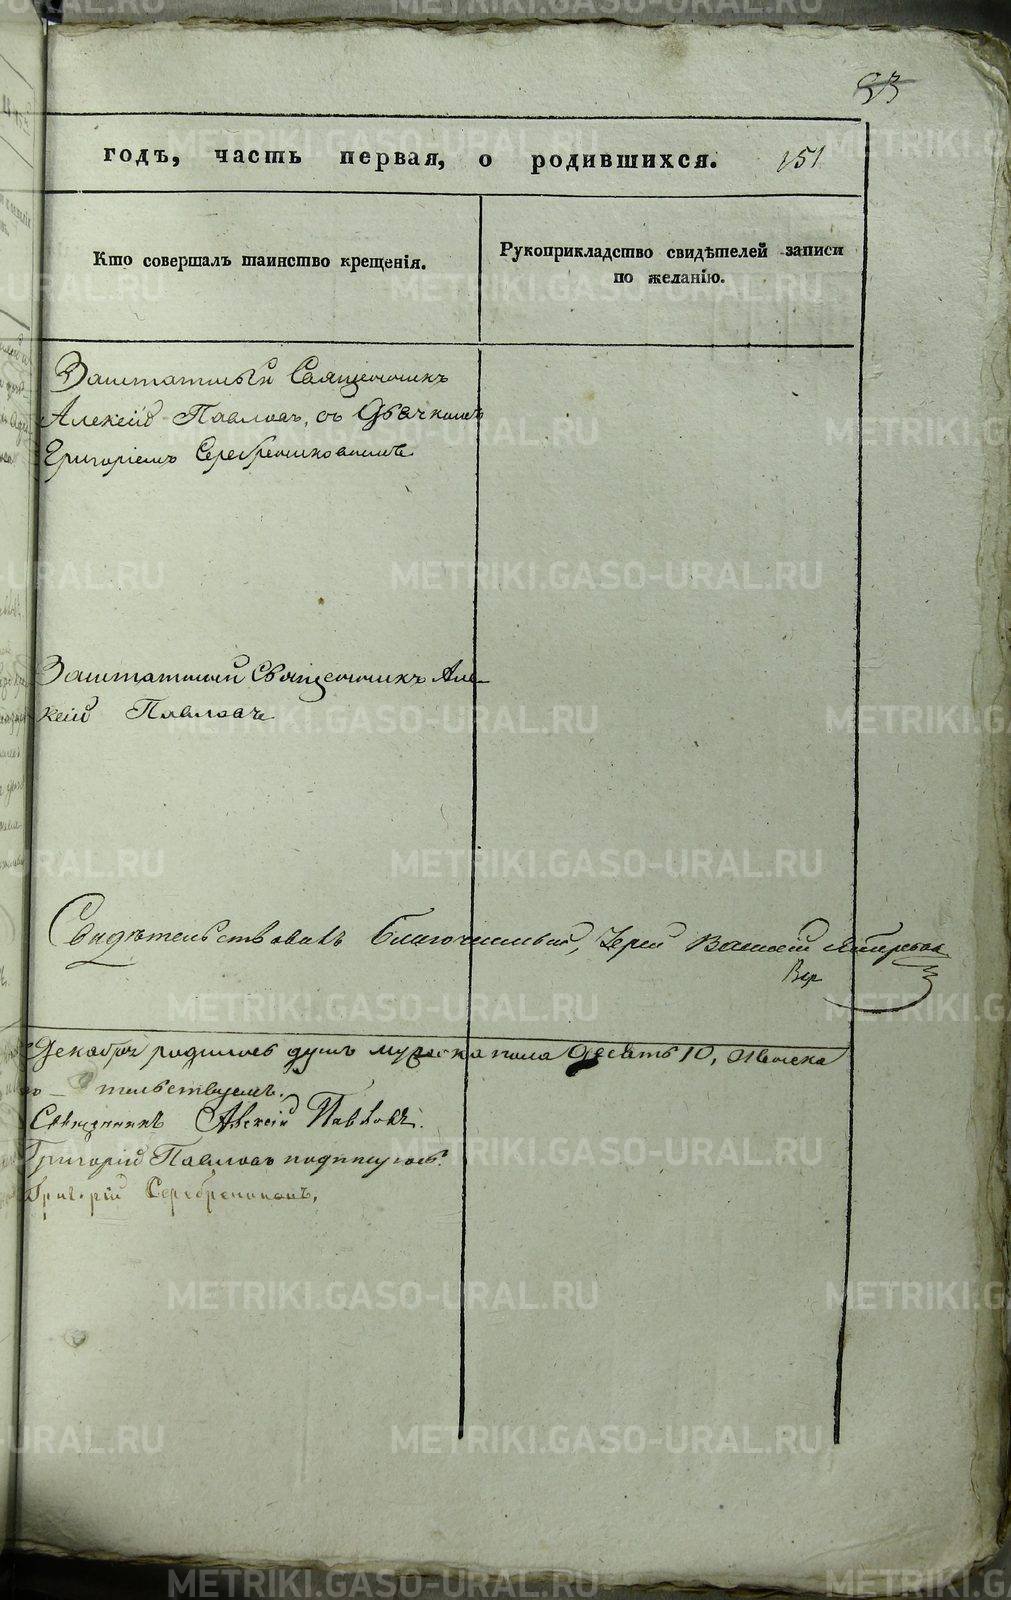 83
годъ, часть первая, о родившихся. 151
Кто совершалъ таинство крещенія.
Рукоприкладство свидѣтелей записи
по желанію.
Заштатный Священникъ
Алексій Павловъ, съ Дьячкомъ
Григоріемъ Серебренниковымъ
Заштатный Священникъ Але-
ксій Павловъ
Свидѣтельствовалъ Благочинный, Іерей
Декабрѣ родилось душъ мужеска пола десять 10, женска
тельствуемъ.
Священникъ Алексій Павловъ.
Григорій Павловъ подписуюсь.
Григорій Серебрениковъ,
METRIKI.GASO-URAL.RU